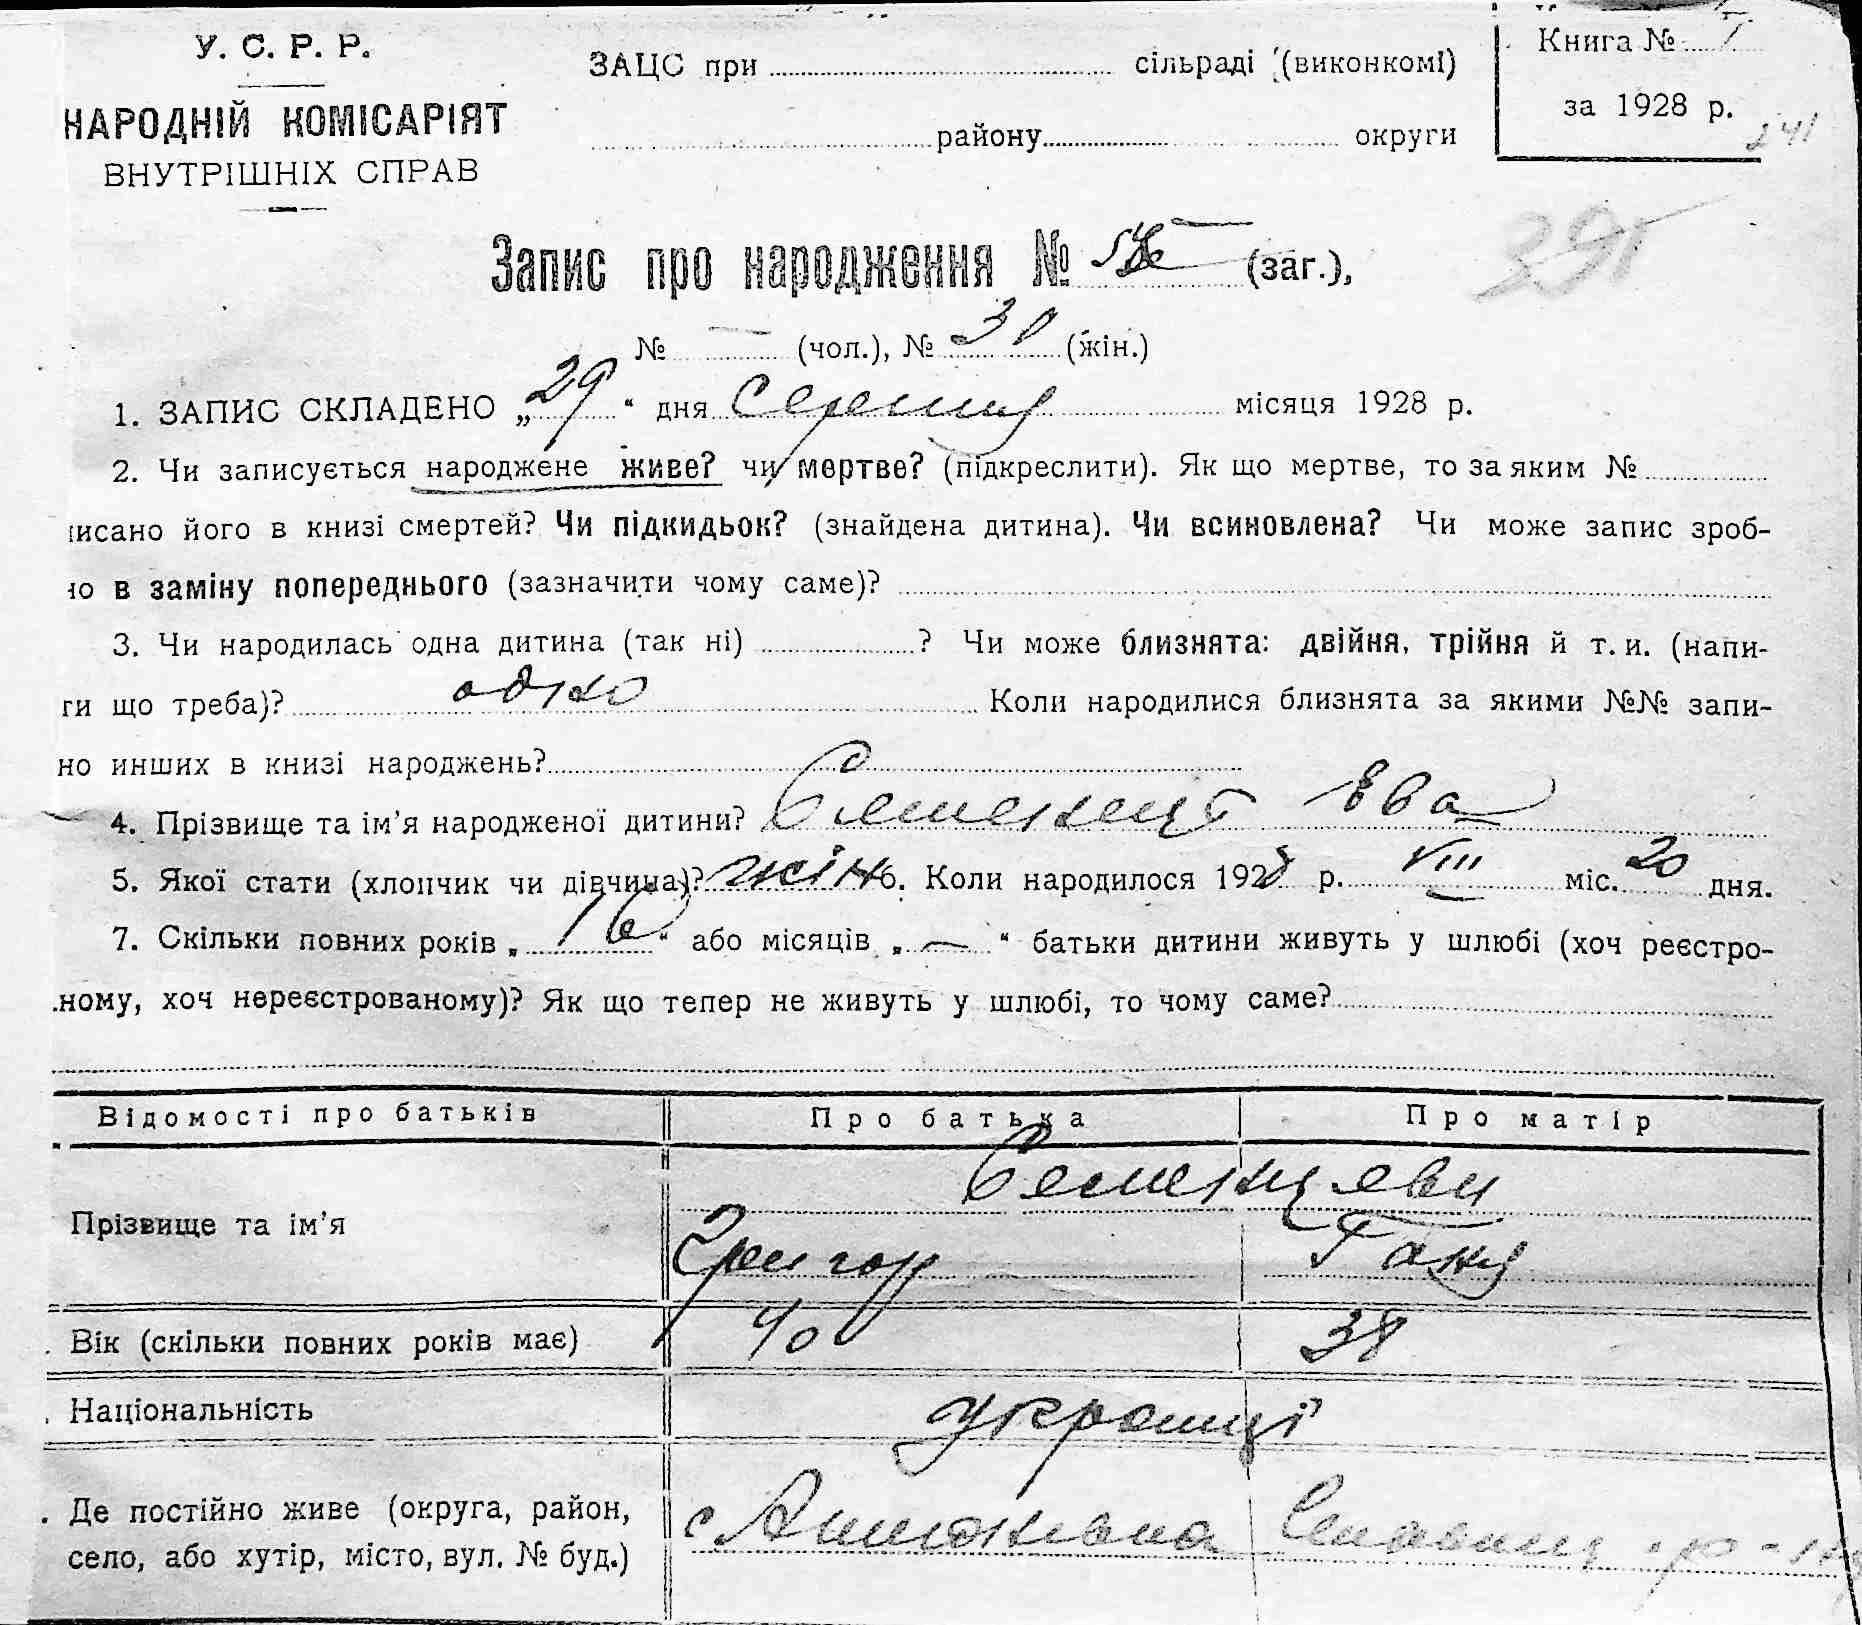 У. С. Р. Р.
НАРОДНІЙ КОМІСАРІЯТ
ВНУТРІШНІХ СПРАВ
ЗАЦС при сільраді (виконкомі)
району округи
Книга №
за 1928 р.
241
Запис про народження № (заг.),
№ — (чол.), № (жін.)
1. ЗАПИС СКЛАДЕНО „29“ дня Серпня місяця 1928 р.
2. Чи записується народжене живе? чи мертве? (підкреслити). Як що мертве, то за яким №
исано його в книзі смертей? Чи підкидьок? (знайдена дитина). Чи всиновлена? Чи може запис зроб-
но в заміну попереднього (зазначити чому саме)?
3. Чи народилась одна дитина (так ні) ? Чи може близнята: двійня, трійня й т. и. (напи-
ти що треба)? одно Коли народилися близнята за якими №№ запи-
но инших в книзі народжень?
4. Прізвище та ім'я народженої дитини? Ева
5. Якої стати (хлопчик чи дівчина)? жін 6. Коли народилося 1928 р. VIII міс. 20 дня.
7. Скільки повних років „16“ або місяців „—“ батьки дитини живуть у шлюбі (хоч реєстро-
ному, хоч нереєстрованому)? Як що тепер не живуть у шлюбі, то чому саме?
Відомості про батьків Про батька Про матір
Прізвище та ім'я
Григор Ганя
Вік (скільки повних років має) 40 38
Національність українці
Де постійно живе (округа, район,
село, або хутір, місто, вул. № буд.)